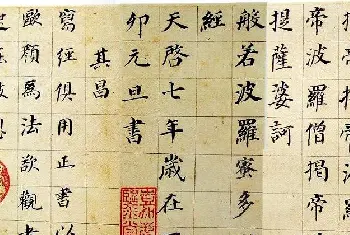 帝波羅僧揭帝
提薩婆訶
般若波羅蜜多
經
天啓七年歲在丁
卯元旦書
其昌
寫經俱用正書以
歐顏爲法欲觀者